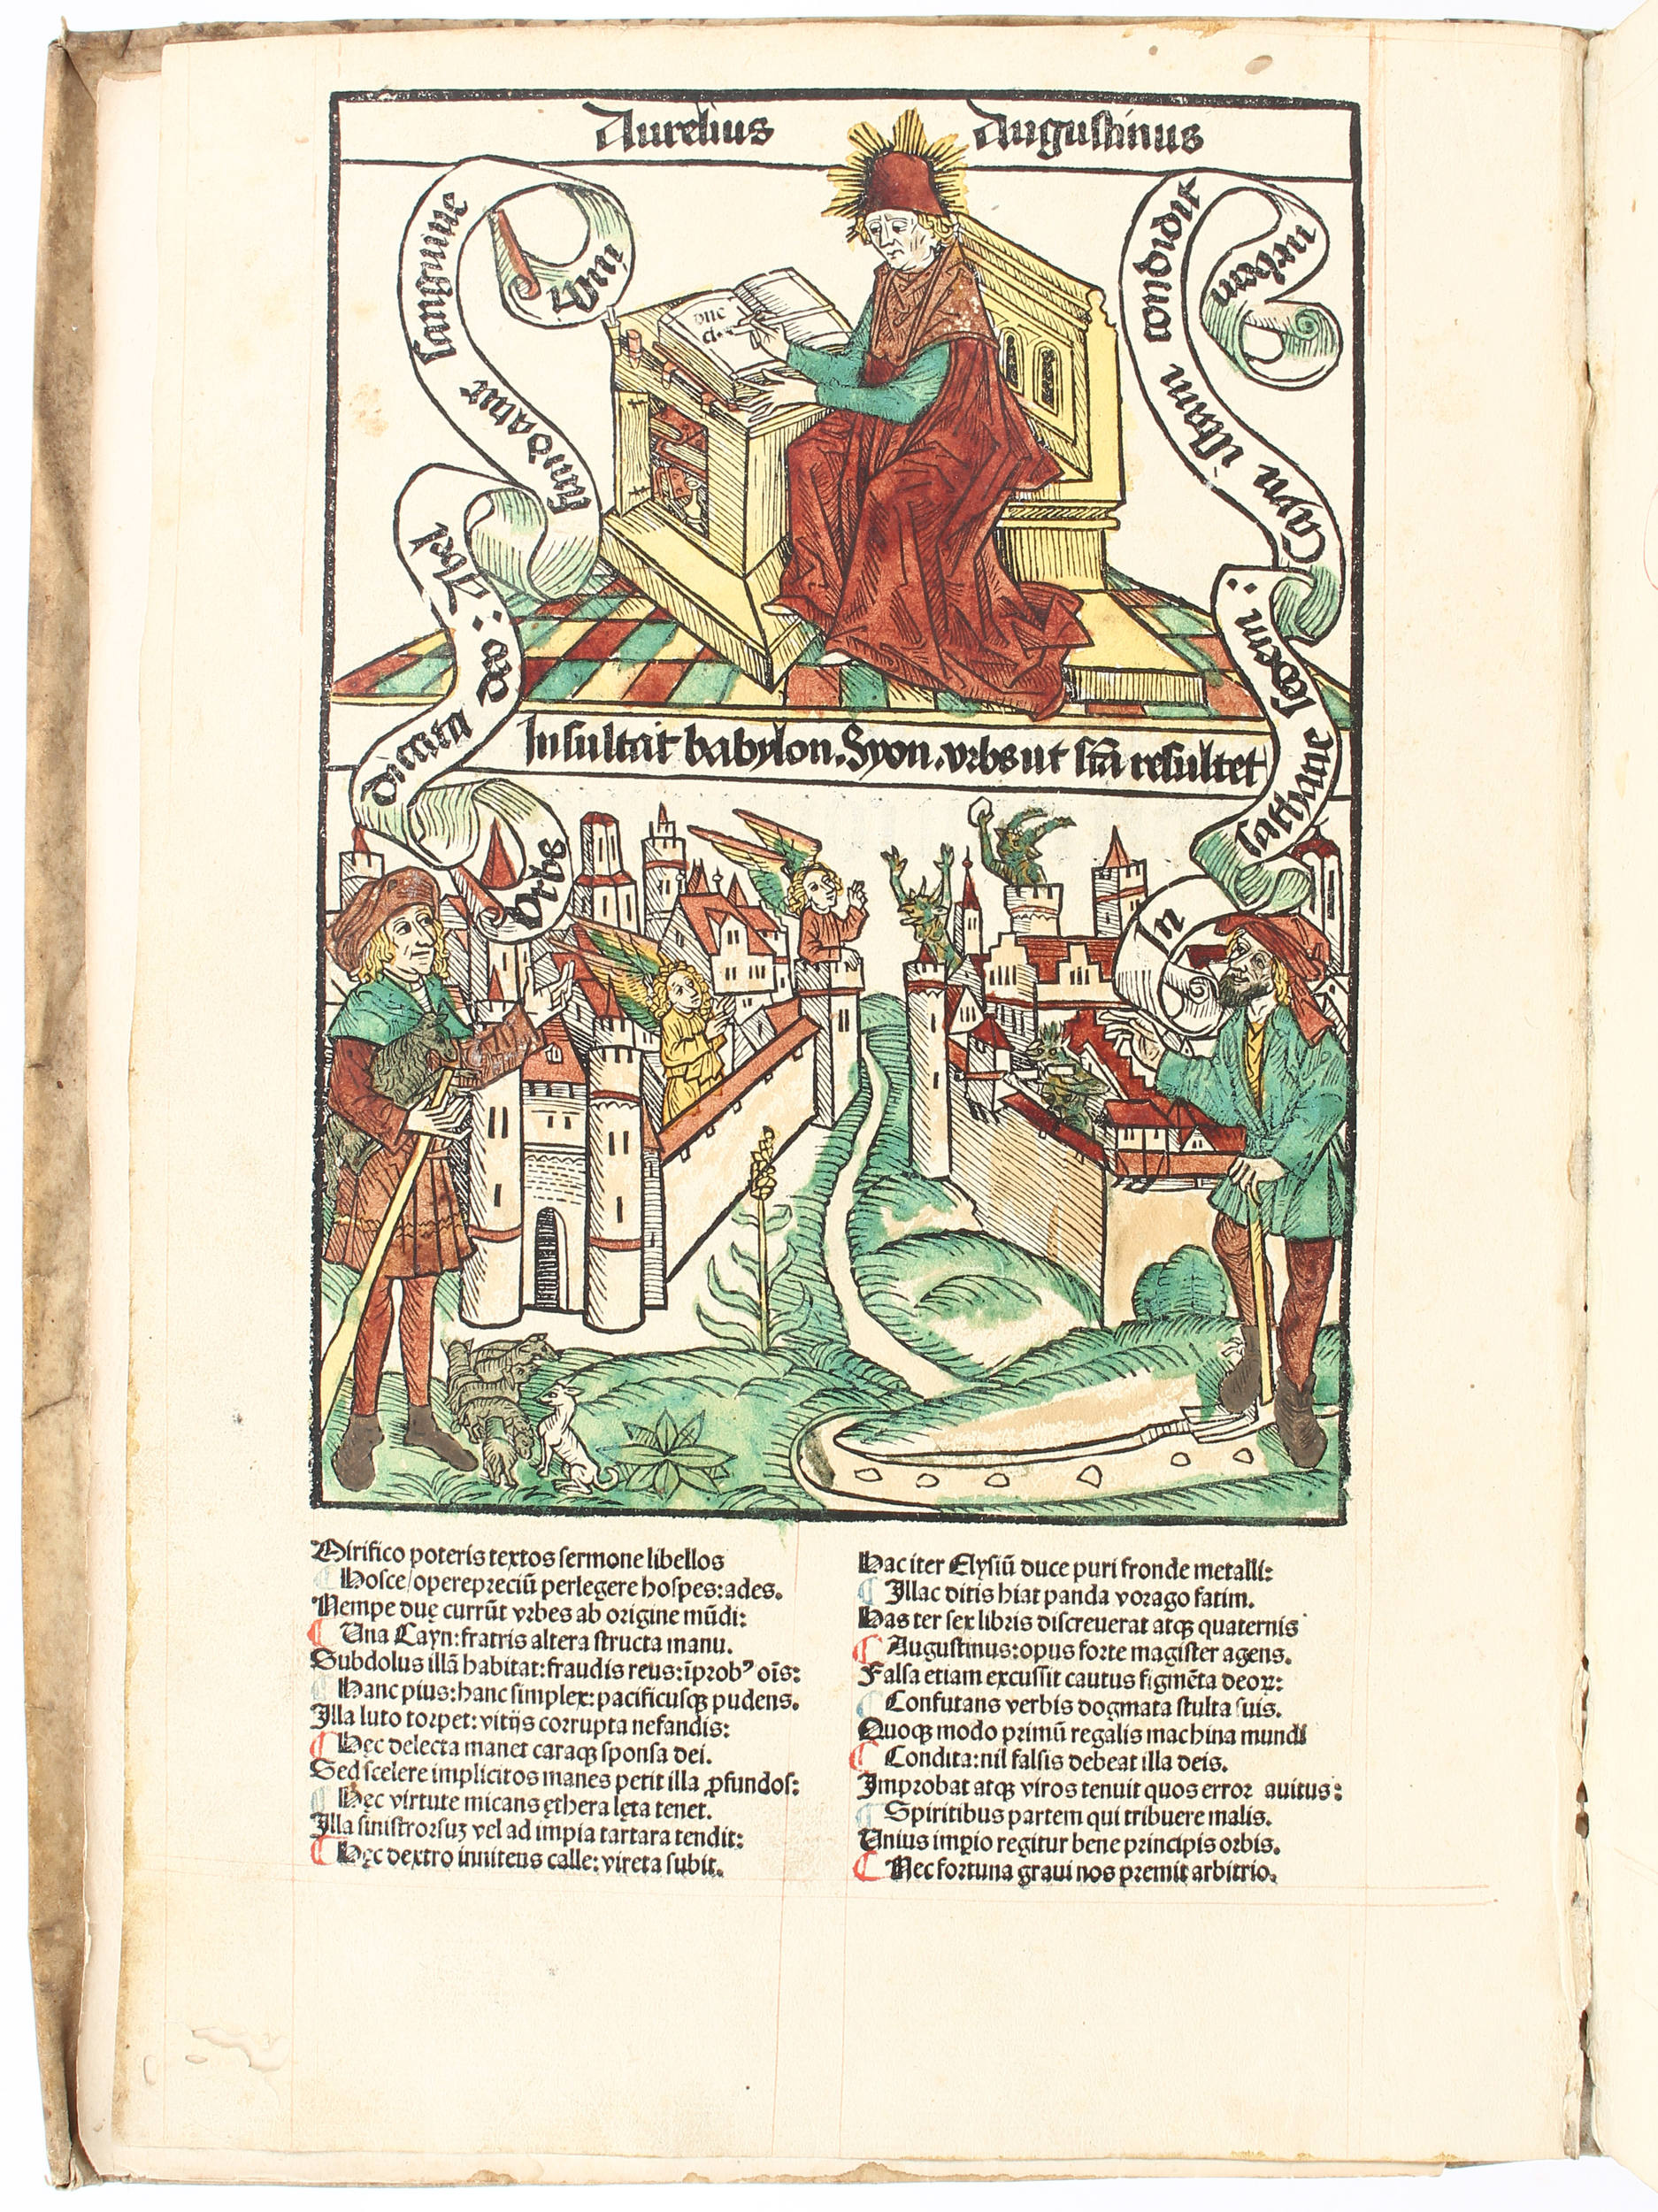 Aurelius Augustinus
Urbs dicata deo : Abel fundatur sanguine
In sathane sedem : Cayn illam condidit urbem
Insultat babylon. Syon. vrbs ut scā resultet
Mirifico poteris textos sermone libellos
Hosce/operepreciū perlegere hospes: ades.
Nempe duę currūt vrbes ab origine mūdi:
Una Cayn: fratris altera structa manu.
Subdolus illā habitat: fraudis reus: īprobꝰ oīs:
Hanc pius: hanc simplex: pacificusqꝫ pudens.
Illa luto torpet: vitijs corrupta nefandis:
Hęc delecta manet caraqꝫ sponsa dei.
Sed scelere implicitos manes petit illa ꝓfundos:
Hęc virtute micans ęthera lęta tenet.
Illa sinistrorsuꝫ vel ad impia tartara tendit:
Hęc dextro innitens calle: vireta subit.
Hac iter Elysiū duce puri fronde metalli:
Illac ditis hiat panda vorago fatim.
Has ter sex libris discreuerat atqꝫ quaternis
Augustinus: opus forte magister agens.
Falsa etiam excussit cautus figmēta deoꝝ:
Confutans verbis dogmata stulta suis.
Quoqꝫ modo primū regalis machina mundi
Condita: nil falsis debeat illa deis.
Improbat atqꝫ viros tenuit quos error auitus:
Spiritibus partem qui tribuere malis.
Unius impio regitur bene principis orbis.
Nec fortuna graui nos premit arbitrio.